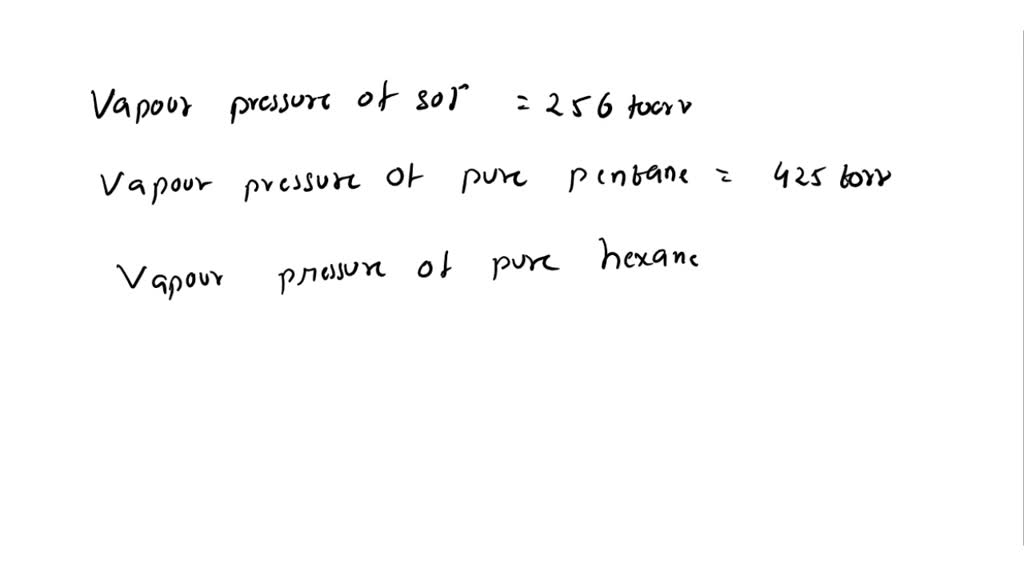 Vapour pressure of sol = 256 torr
Vapour pressure of pure pentane = 425 torr
Vapour pressure of pure hexane